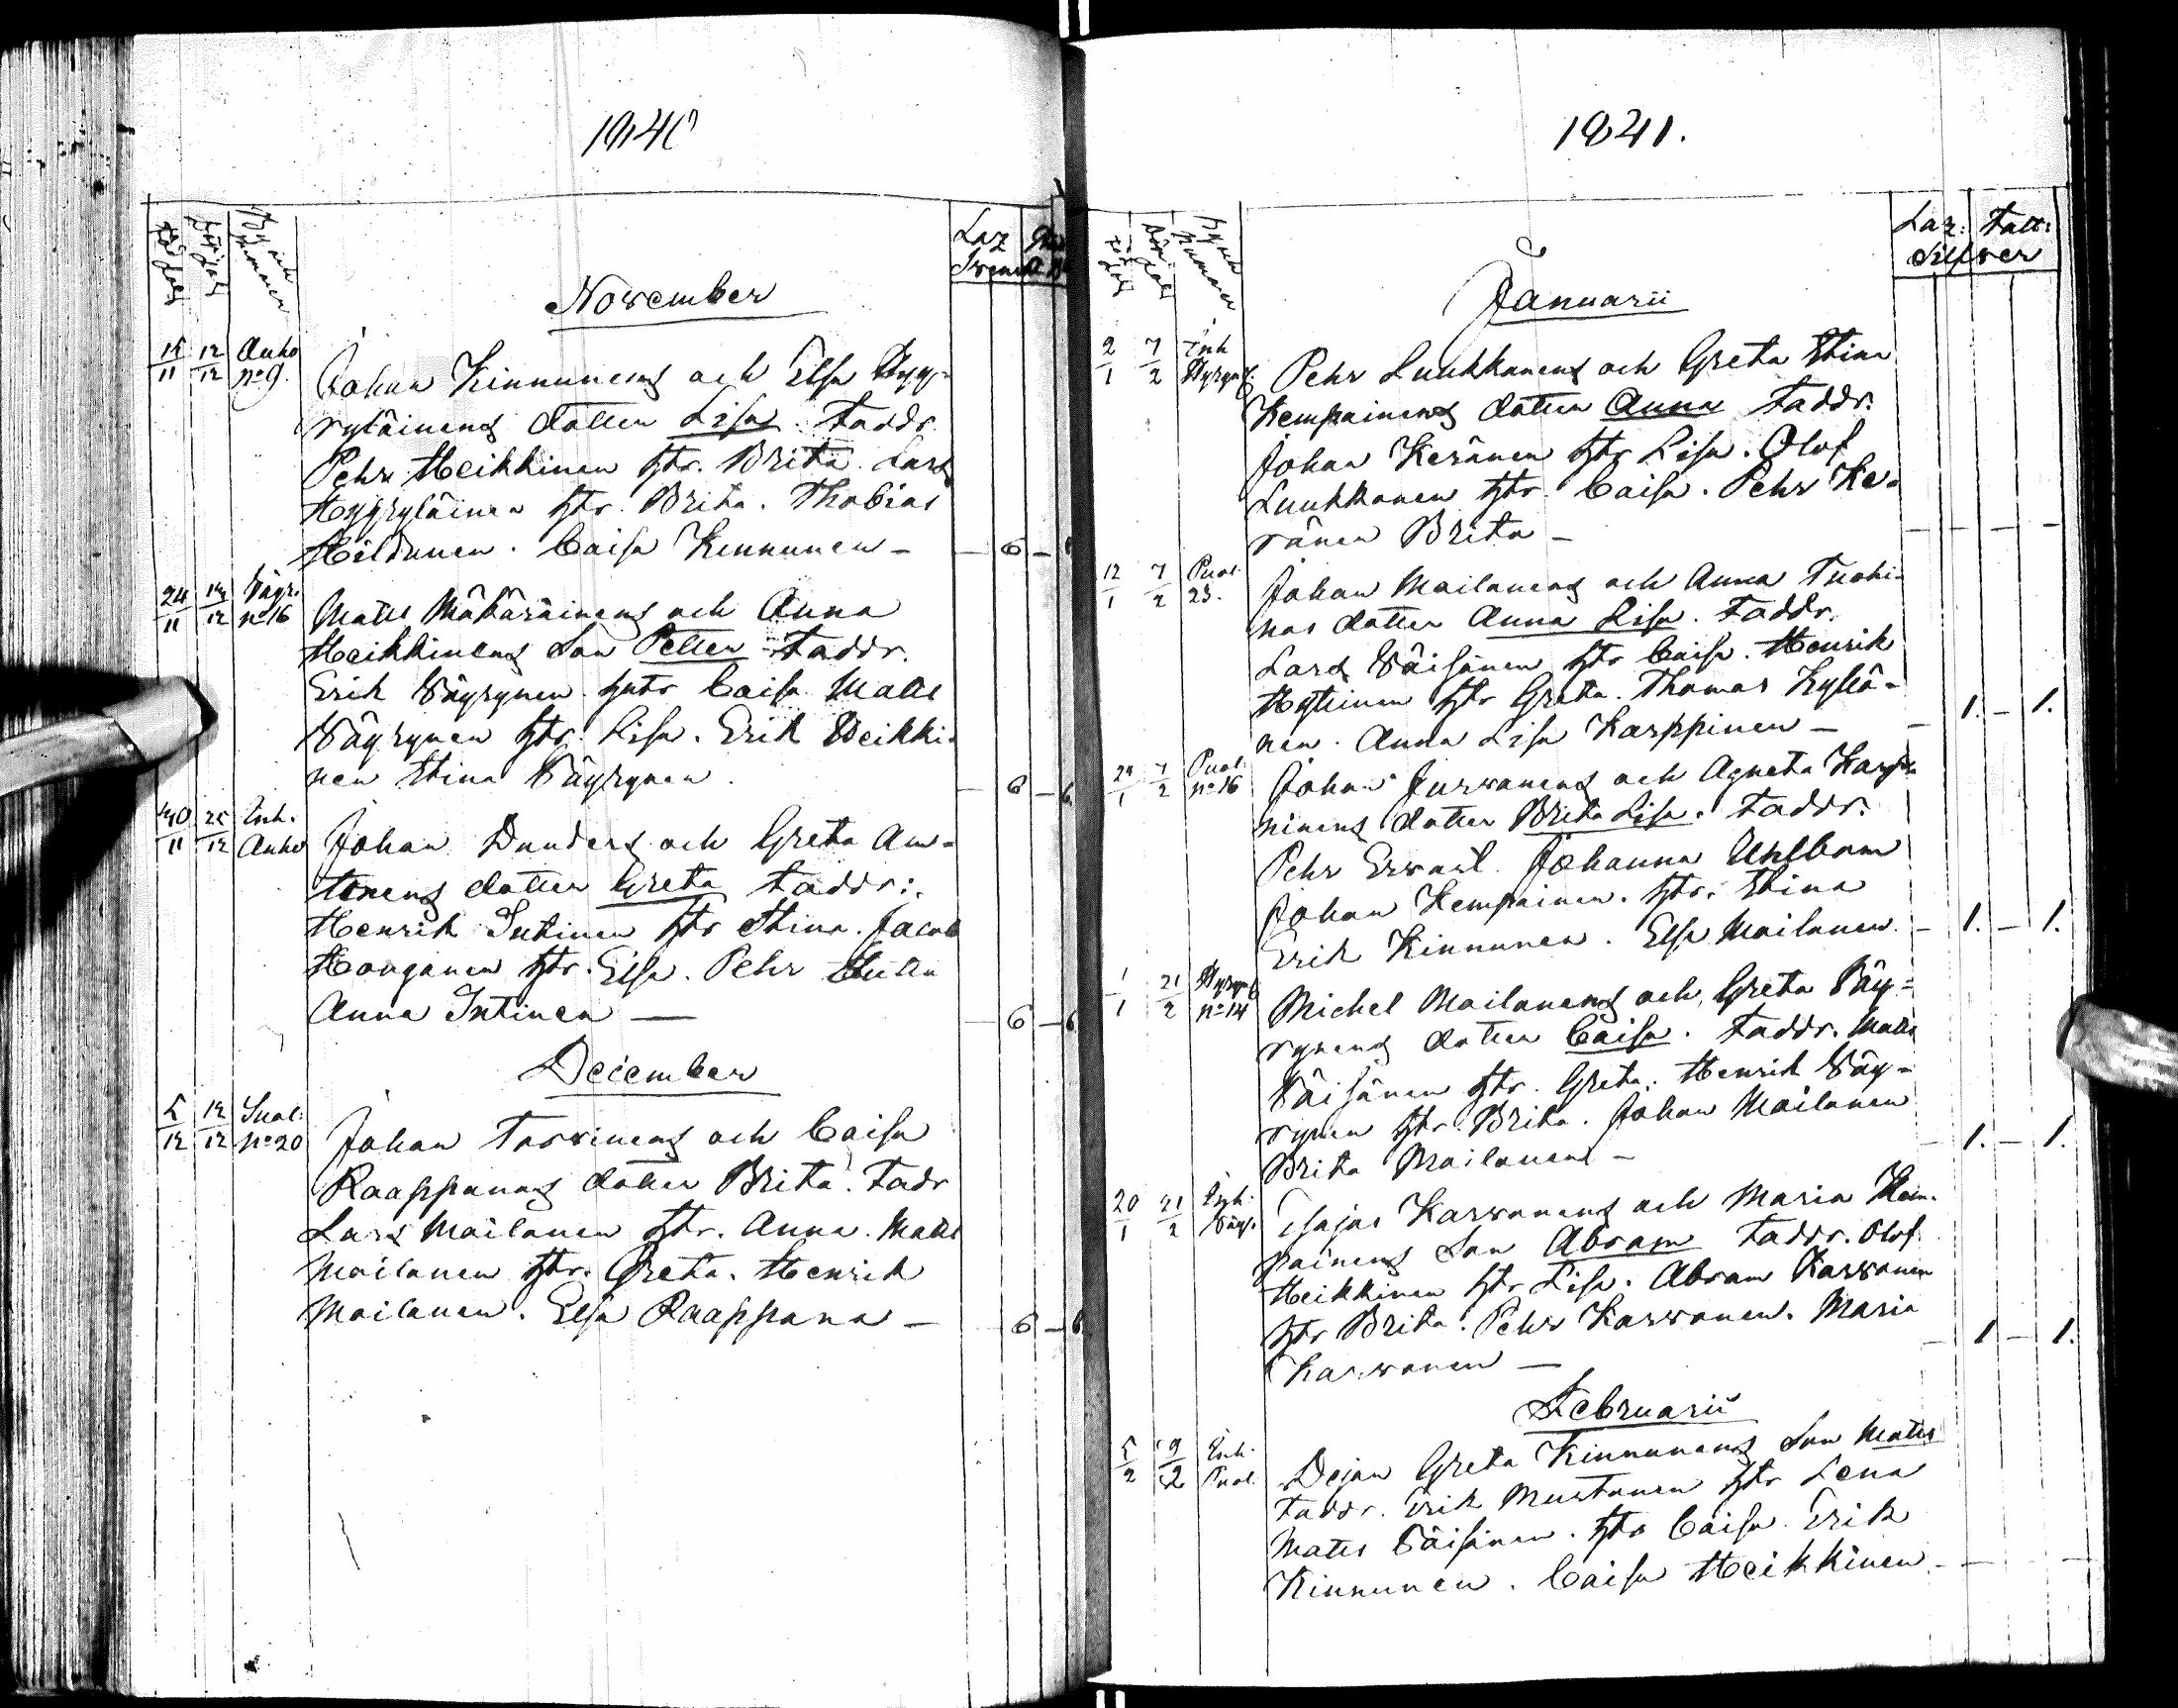 1840
Föd. dag
Döp. dag
By och Nummer
Laz
November
15/11 12/12 Auho n:o 9.
Johan Kinnunens och Elsa Hyy-
ryläinens dotter Lisa. Faddr.
Pehr Heikkinen hstr. Brita. Lars
Hyyryläinen hstr. Brita. Thobias
Hildunen. Caisa Kinnunen — — 6 —
24/11 12 Väyr. n:o 16
Matts Mäkäräinens och Anna
Heikkinens Son Petter Faddr.
Erik Väyrynen hstr Caisa Matts
Väyrynen hstr. Lisa. Erik Heikki-
nen Stina Väyrynen. — 6 — 6
30/11 25/12 Inh. Auho
Johan Dunders och Greta
tonens dotter Greta Faddr:.
Henrik Intinen hstr Stina. Jacob
Honganen hstr. Elsa. Pehr
Anna Intinen — — 6 — 6
December
5/12 12/12 n:o 20
Johan Tervinens och Caisa
Raappanas dotter Brita. Fadr
Lars Mailanen hstr. Anna. Matts
Mailanen hstr. Greta. Henrik
Mailanen. Elsa Raappana — — 6 — 6
1841.
Föd. dag
Döp. dag
By och Nummer
Laz: Fatt:
Silfver
Januarii
2/1 7/2 Inh
Pehr Luukkanens och Greta Stina
Kempainens dotter Anna Faddr.
Johan Keränen hstr Lisa. Olof
Luukkanen hstr. Caisa. Pehr Ke-
ränen Brita — — — — —
12/1 7/2 Puol. 23.
Johan Mailanens och Anna Tuohi-
nas dotter Anna Lisa. Faddr.
Lars Väisänen hstr Caisa. Henrik
Hytinen hstr Greta. Thomas Kyllö-
nen. Anna Lisa Karppinen — — 1. — 1.
24/1 7/2 Puol. n:o 16
Johan Jurvanens och Agneta Karp-
pinens dotter Brita Lisa. Faddr.
Pehr Ervast. Johanna Uhlbom
Johan Kempainen. hstr. Stina
Erik Kinnunen. Elsa Mailanen. — 1. — 1.
1/1 21/2 n:o 14
Michel Mailanens och Greta Väy-
rynens dotter Caisa. Faddr. Matts
Väisänen hstr. Greta. Henrik Väy-
rynen hstr. Brita. Johan Mailanen
Brita Mailanen — — 1. — 1.
20/1 21/2 Inh. Väyr.
Esajas Karvonens och Maria Kem-
painens Son Abram Faddr. Olof
Heikkinen hstr Lisa. Abram Karvonen
hstr Brita. Pehr Karvonen. Maria
Karvonen — — 1 — 1.
Februarii
5/2 9/2 Inh. Puol.
Dejan Greta Kinnunens Son Matts
Faddr. Erik Mustonen hstr Lena
Matts Väisänen. hstr Caisa. Erik
Kinnunen. Caisa Heikkinen. — —